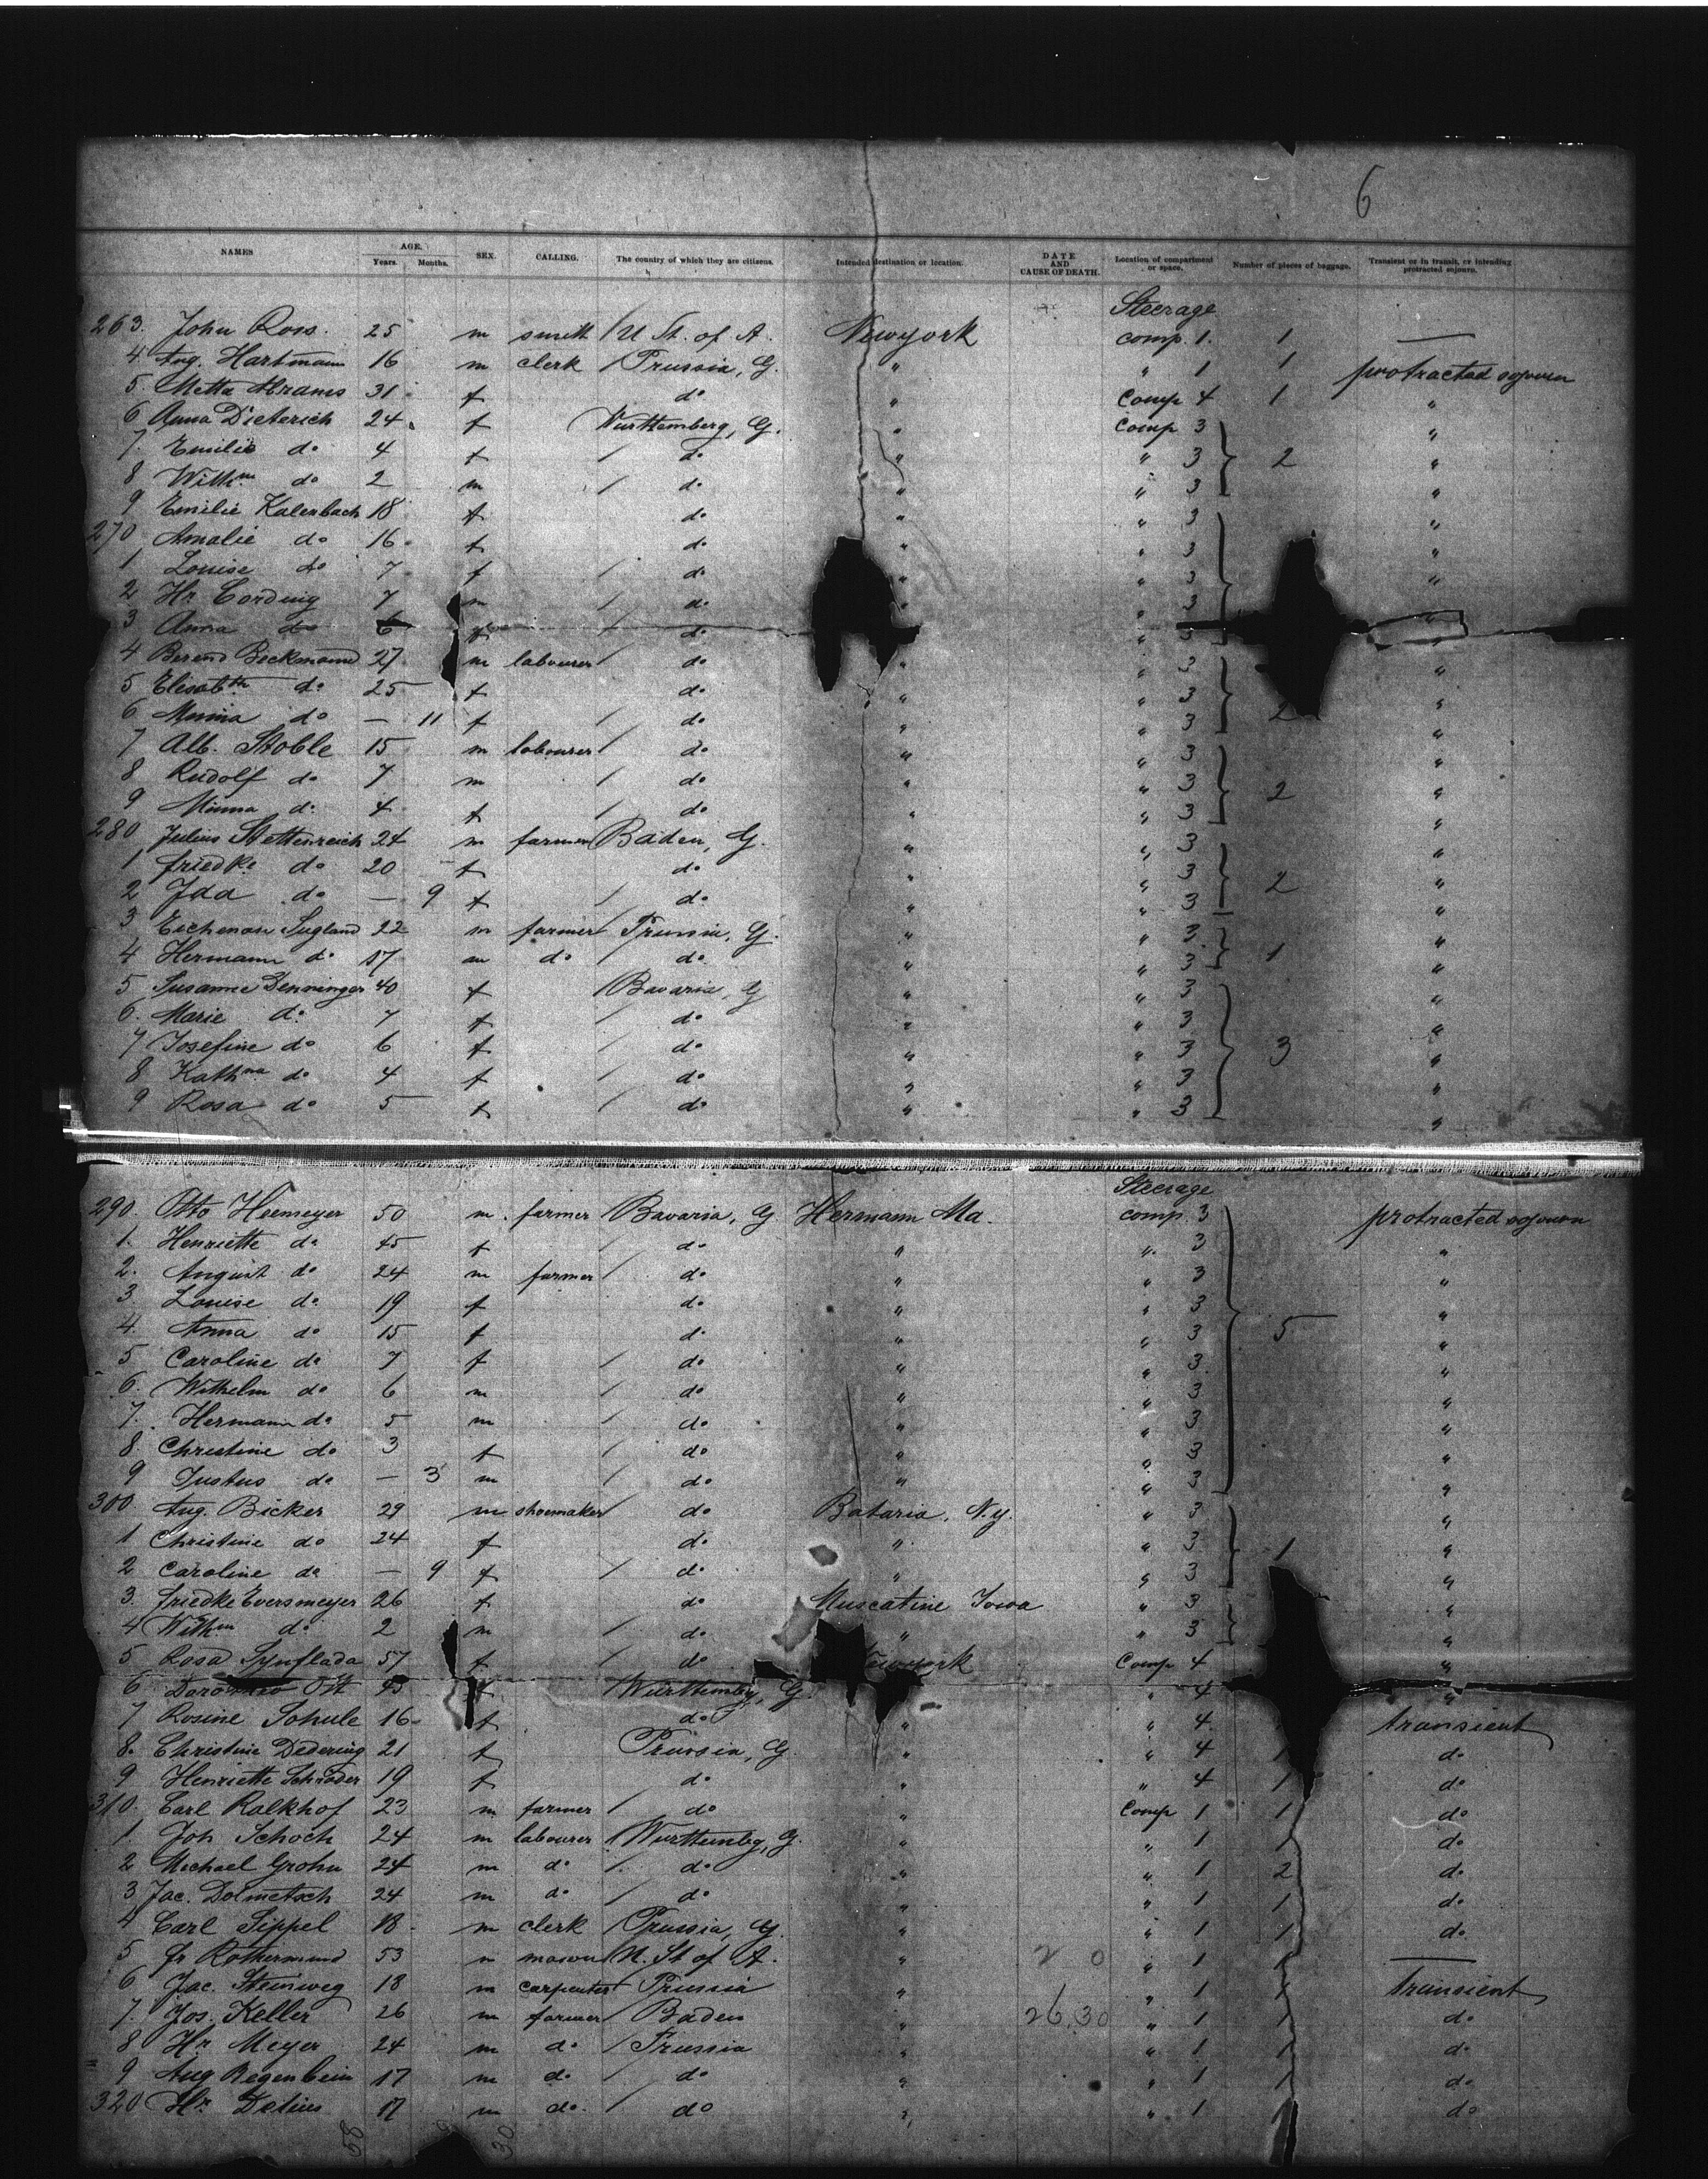 6
NAMES AGE. Years. Months. SEX. CALLING. The country of which they are citizens. Intended destination or location. DATE AND CAUSE OF DEATH. Location of compartment or space. Number of pieces of baggage. Transient or in transit, or intending protracted sojourn.
Steerage
263. John Ross. 25 m smith / U St. of A. Newyork comp. 1. 1 —
4. Aug. Hartmann 16 m clerk / Prussia, G. " " 1 1 protracted sojourn
5. Metta Abrams 31 f do " Comp 4 1 "
6 Anna Dieterich 24 f Württemberg, G. " Comp 3 "
7. Emilie do 4 f / do " " 3 2 "
8 Wilhm do 2 m / do " " 3 "
9 Emilie Kalenbach 18 f do " " 3 "
270 Amalie do 16 f do " " 3 "
1 Louise do 7 f / do " " 3 "
2 Hr Cording 7 m / do " " 3 "
3 Anna do 6 f / do " 3 "
4 Berend Beckmann 27 m labourer / do " " 3 "
5 Elisabth do 25 f do " " 3 "
6 Minna do — 11 f / do " " 3 2 "
7 Alb. Stoble 15 m labourer / do " " 3 "
8 Rudolf do 7 m / do " " 3 2 "
9 Minna do 4 f / do " " 3 "
280 Julius Stettenreich 24 m farmer Baden, G. " " 3 "
1 Friedke do 20 f do " " 3 2 "
2 Ida do — 9 f / do " " 3 "
3 22 m farmer / Prussia, G. " " 3 "
4 Hermann do 17 m do / do " " 3 1 "
5 Susanne Denninger 40 f Bavaria, G " " 3 "
6. Marie do 7 f / do " " 3 "
7 Josefine do 6 f / do " " 3 3 "
8 Kathna do 4 f / do " " 3 "
9 Rosa do 5 f / do " " 3 "
Steerage
290. Otto 50 m. farmer / Bavaria, G Hermann Ma. comp. 3 protracted sojourn
1. Henriette do 45 f / do " " 3 "
2. August do 24 m farmer / do " " 3 "
3 Louise do 19 f do " " 3 "
4. Anna do 15 f do " " 3 5 "
5 Caroline do 7 f / do " " 3 "
6. Wilhelm do 6 m / do " " 3 "
7. Hermann do 5 m / do " " 3 "
8 Christine do 3 f / do " " 3 "
9 Justus do — 3 m / do " " 3 "
300 Aug. Bicker 29 m shoemaker / do Bataria, N.y. " 3 "
1 Christine do 24 f do " " 3 1 "
2 Caroline do — 9 f / do " " 3 "
3. Friedke Eversmeyer 26 f do Muscatine Iowa " 3 "
4 Wilhm do 2 m / do " " 3 "
5 Rosa 57 f / do Newyork Comp 4 "
6 Dorothea Ott 43 f Württembg, G. " 4 "
7 Rosine Schule 16 f do " " 4 transient
8. Christine Dedering 21 f Prussia, G. " " 4 1 do
9 Henriette Schröder 19 f do " " 4 1 do
310. Carl Kalkhof 23 m farmer / do " Comp 1 1 do
1. Joh Schoch 24 m labourer / Württembg, G. " " 1 1 do
2 Michael Grohn 24 m do / do " " 1 2 do
3 Jac. Dolmetsch 24 m do / do " " 1 1 do
4 Carl Sippel 18 m clerk / Prussia, G. " " 1 1 do
5 Fr Rothermund 53 m mason / U. St of A. " 2 0 " 1 1 —
6 Jac. Steinweg 18 m carpenter / Prussia " " 1 1 Transient
7. Jos. Keller 26 m farmer / Baden " 26.30 " 1 1 do
8 Hr Meyer 24 m do / Prussia " " 1 1 do
9 Aug Regenbein 17 m do / do " " 1 1 do
320 Hr Detius 17 m do / do " " 1 1 do
58 30